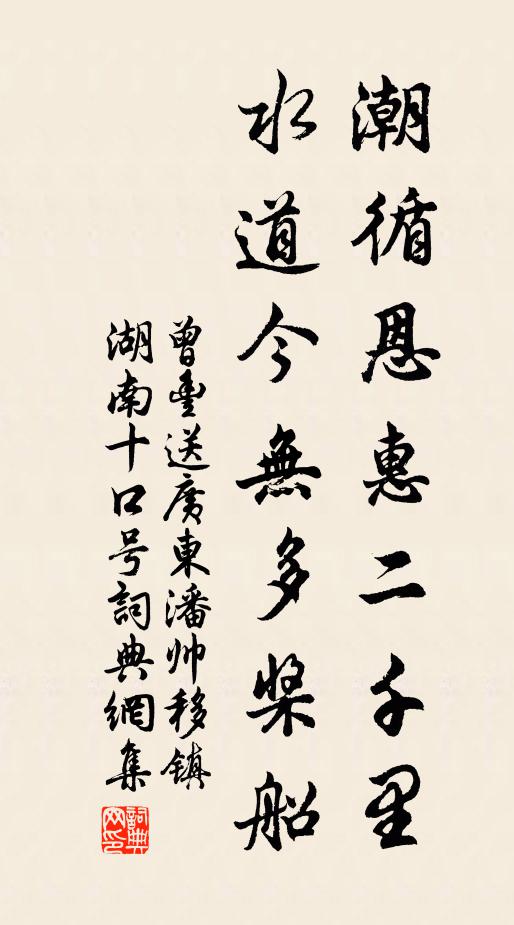 潮循恩惠二千里
水道今無多槳船
曾豊送廣東潘帅移鎮
湖南十口号詞典網集
詞典網印